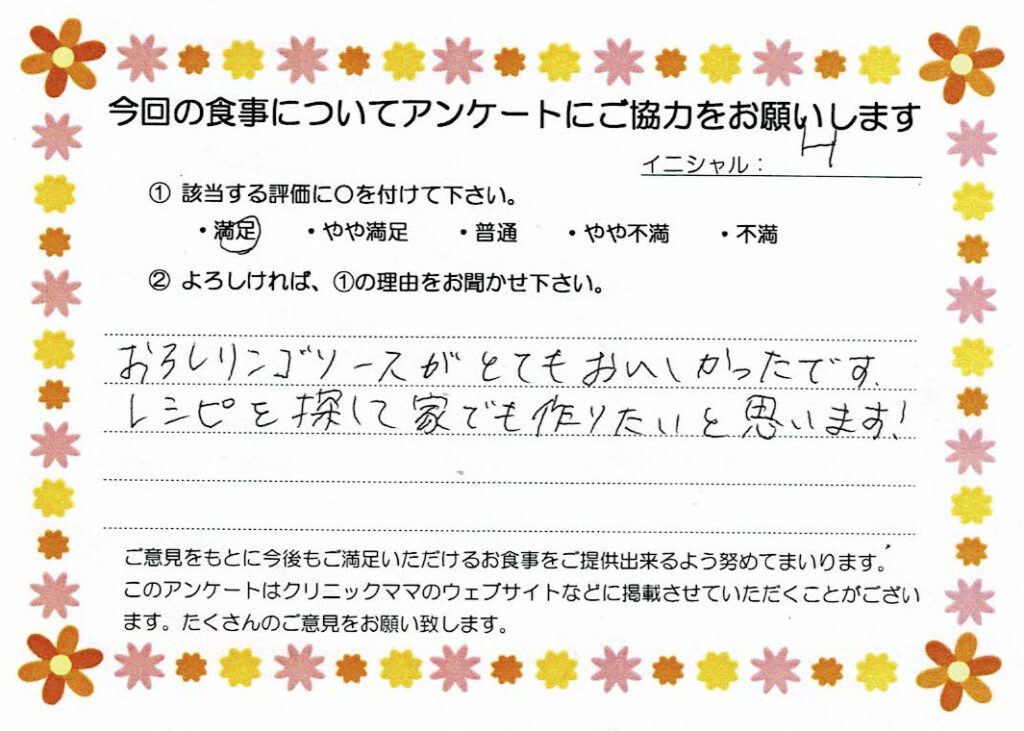 今回の食事についてアンケートにご協力をお願いします
イニシャル： H
① 該当する評価に〇を付けて下さい。
・満足 ・やや満足 ・普通 ・やや不満 ・不満
② よろしければ、①の理由をお聞かせ下さい。
おろしリンゴソースがとてもおいしかったです。
レシピを探して家でも作りたいと思います！
ご意見をもとに今後もご満足いただけるお食事をご提供出来るよう努めてまいります。
このアンケートはクリニックママのウェブサイトなどに掲載させていただくことがござい
ます。たくさんのご意見をお願い致します。